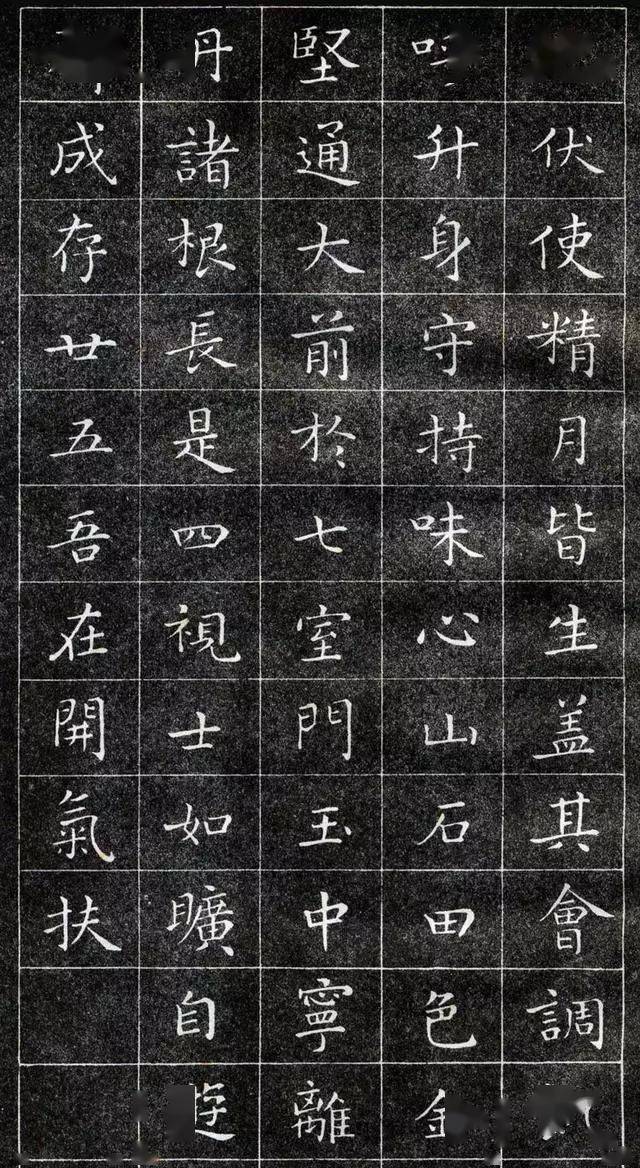 伏使精月皆生盖其會調
升身守持味心山石田色金
堅通大前於七室門玉中寧離
丹諸根長是四視士如曠自
成存廿五吾在開氣扶